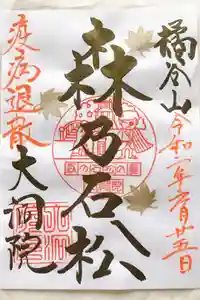 橘谷山
令和二年六月廿五日
森乃石松
疫病退散
大洞院